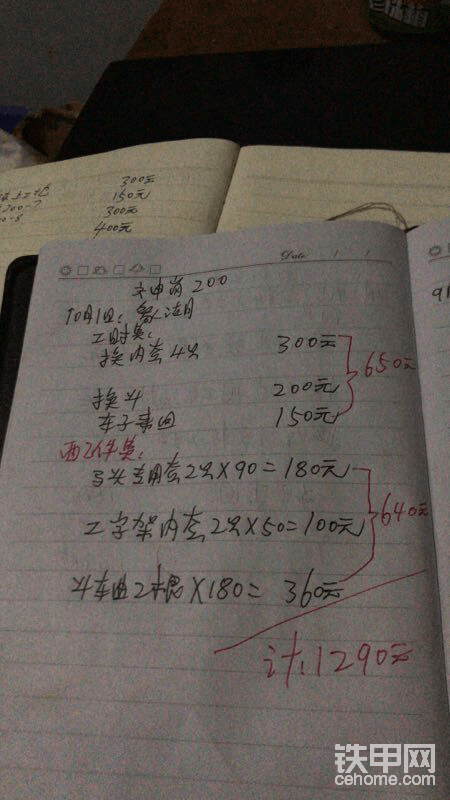 300元
150元
300元
400元
Date / /
200
10月1日:
工时费:
换内套4只 300元
650元
换斗 200元
车子 150元
配件费:
马头专用套2只×90=180元
640元
工字架内套2只×50=100元
斗车曲2根×180= 360元
计:1290元
铁甲网
cehome.com